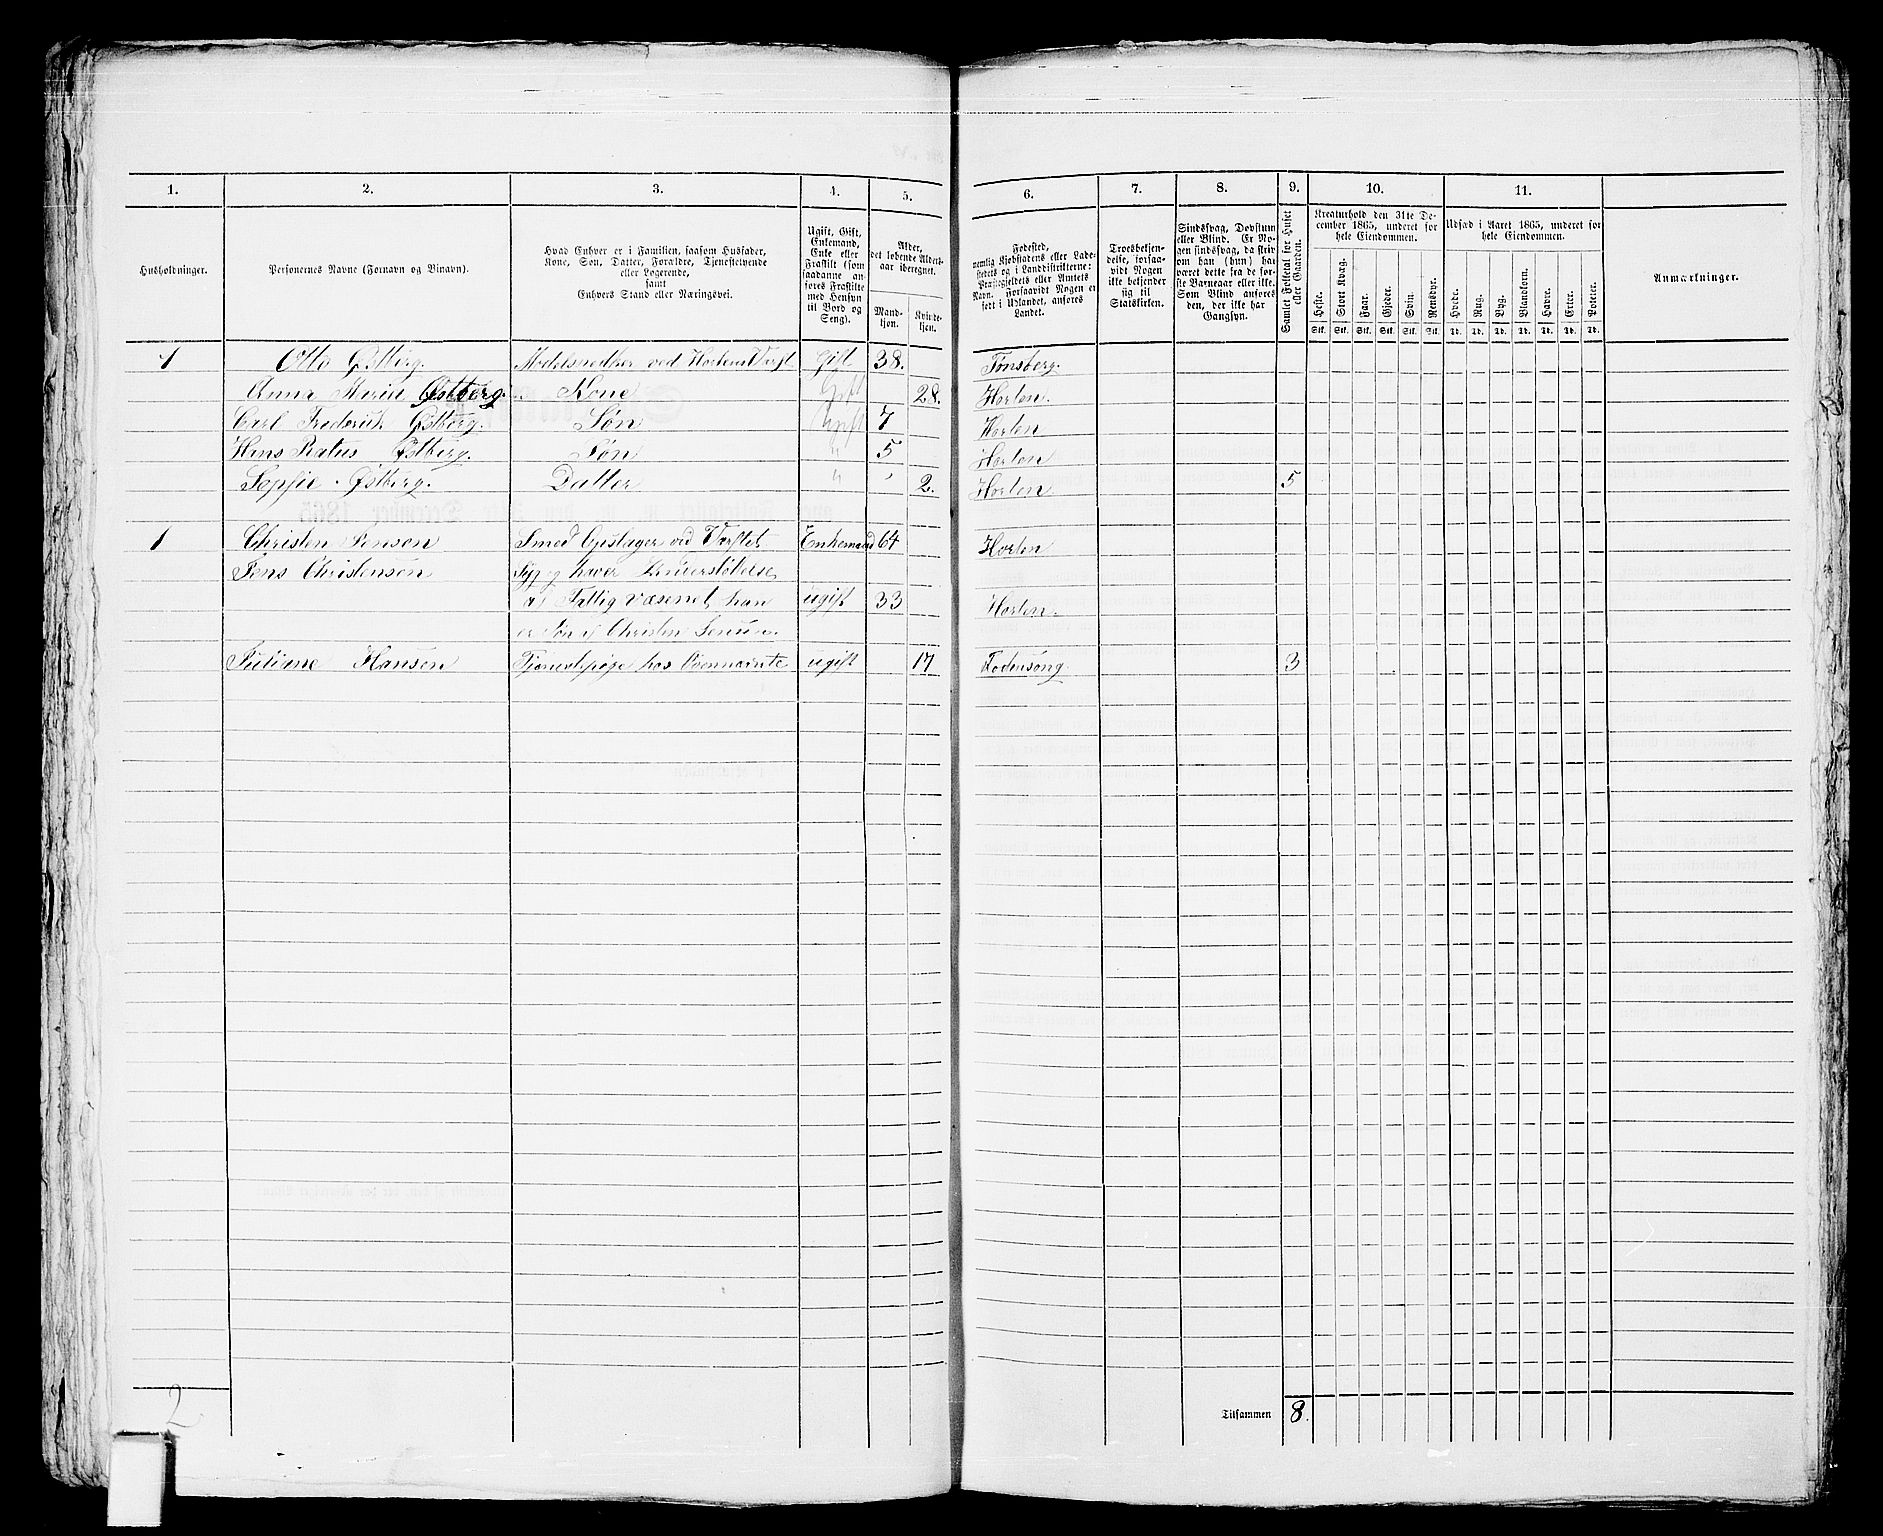 1. 2. 3. 4. 5. 6. 7. 8. 9. 10. 11.
Husholdninger.
Personernes Navne (Fornavn og Binavn).
Hvad Enhver er i Familien, saasom Husfader,
Kone, Søn, Datter, Forældre, Tjenestetyende
eller Logerende,
samt
Enhvers Stand eller Næringsvei.
Ugift, Gift,
Enkemand,
Enke eller
Fraskilt (som
saadanne an-
føres Fraskilte
med Hensyn
til Bord og
Seng).
Alder,
det løbende Alders-
aar iberegnet.
Mand-
kjøn.
Kvinde-
kjøn.
Fødested,
nemlig Kjøbstadens eller Lade-
stedets og i Landdistrikterne:
Præstegjeldets eller Amtets
Navn. Forsaavidt Nogen er
født i Udlandet, anføres
Landet.
Troesbekjen-
delse, forsaa-
vidt Nogen
ikke bekjender
sig til
Statskirken.
Sindssvag, Døvstum
eller Blind. Er No-
gen sindssvag, da skriv
om han (hun) har
været dette fra de før-
ste Barneaar eller ikke.
Som Blind anføres
den, der ikke har
Gangsyn.
Samlet Folketal for Huset
eller Gaarden.
Kreaturhold den 31te De-
cember 1865, underet for
hele Eiendommen.
Heste. Stort Kvæg. Faar. Gjeder. Svin. Rensdyr.
Stk. Stk. Stk. Stk. Stk. Stk.
Udsæd i Aaret 1865, underet for
hele Eiendommen.
Hvede. Rug. Byg. Blandkorn. Havre. Erter. Poteter.
Td. Td. Td. Td. Td. Td. Td.
Anmærkninger.
1 Otto Østberg. Modelsnedker ved Hortens Verft gift 38. Tønsberg.
Anna Maria Østberg. Kone Gift 28. Horten.
Carl Frederik Østberg. Søn Ugift 7 Horten
Hans Ratus Østberg. Søn " 5 Horten
Sopfie Østberg. Datter " " 2. Horten. 5
1 Christen Jenson Smed Opslager ved Verftet Enkemand 64 Horten
Jens Christensen Syg og haver Understøtelse
af Fattig væsenet, han ugift 33 Horten.
er Søn af Christen Jensen.
Juliane Hansen Tjenestepige hos Ovennævnte ugift 17 3
2
Tilsammen 8.